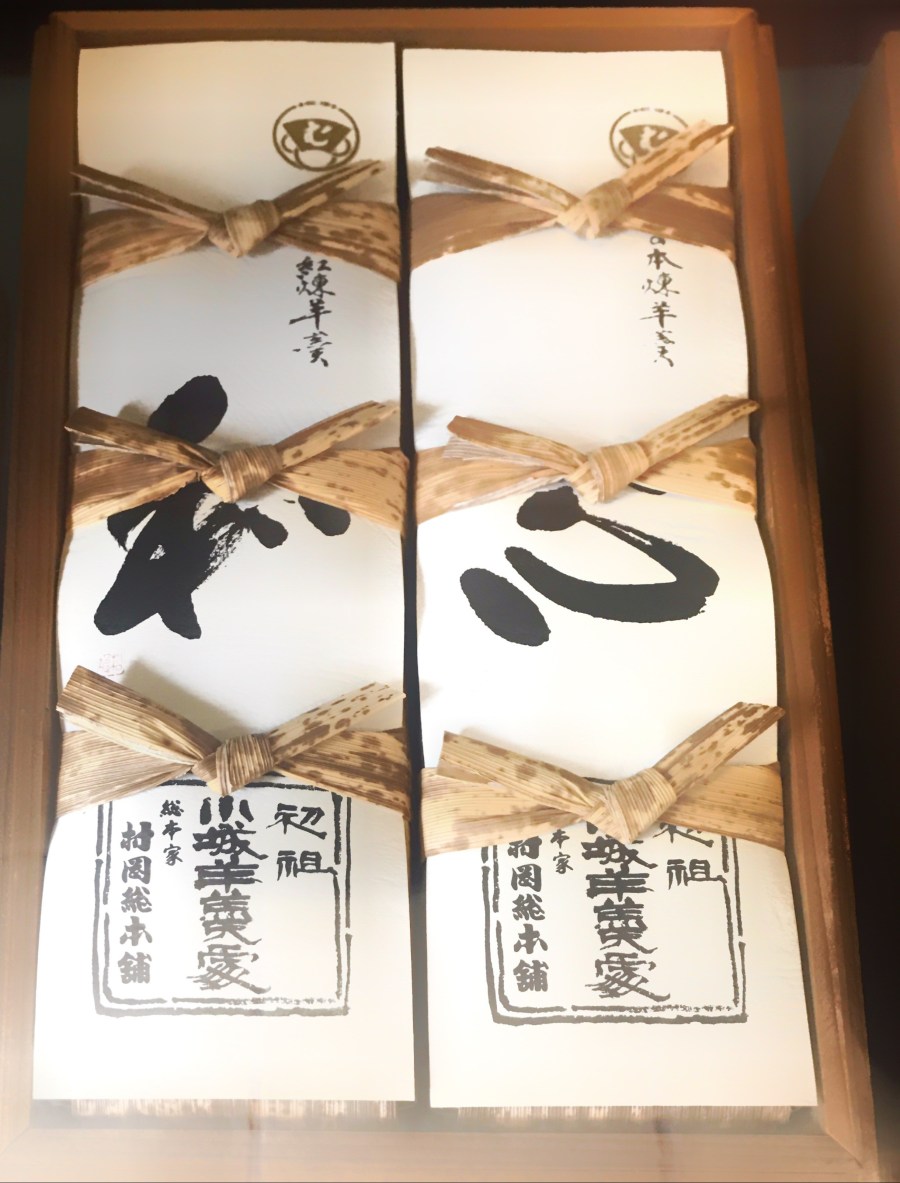 紅煉羊羹
和
初祖
小城羊羹處
総本家
村岡総本舗
本煉羊羹
心
初祖
城羊羹處
本家
村岡総本舗